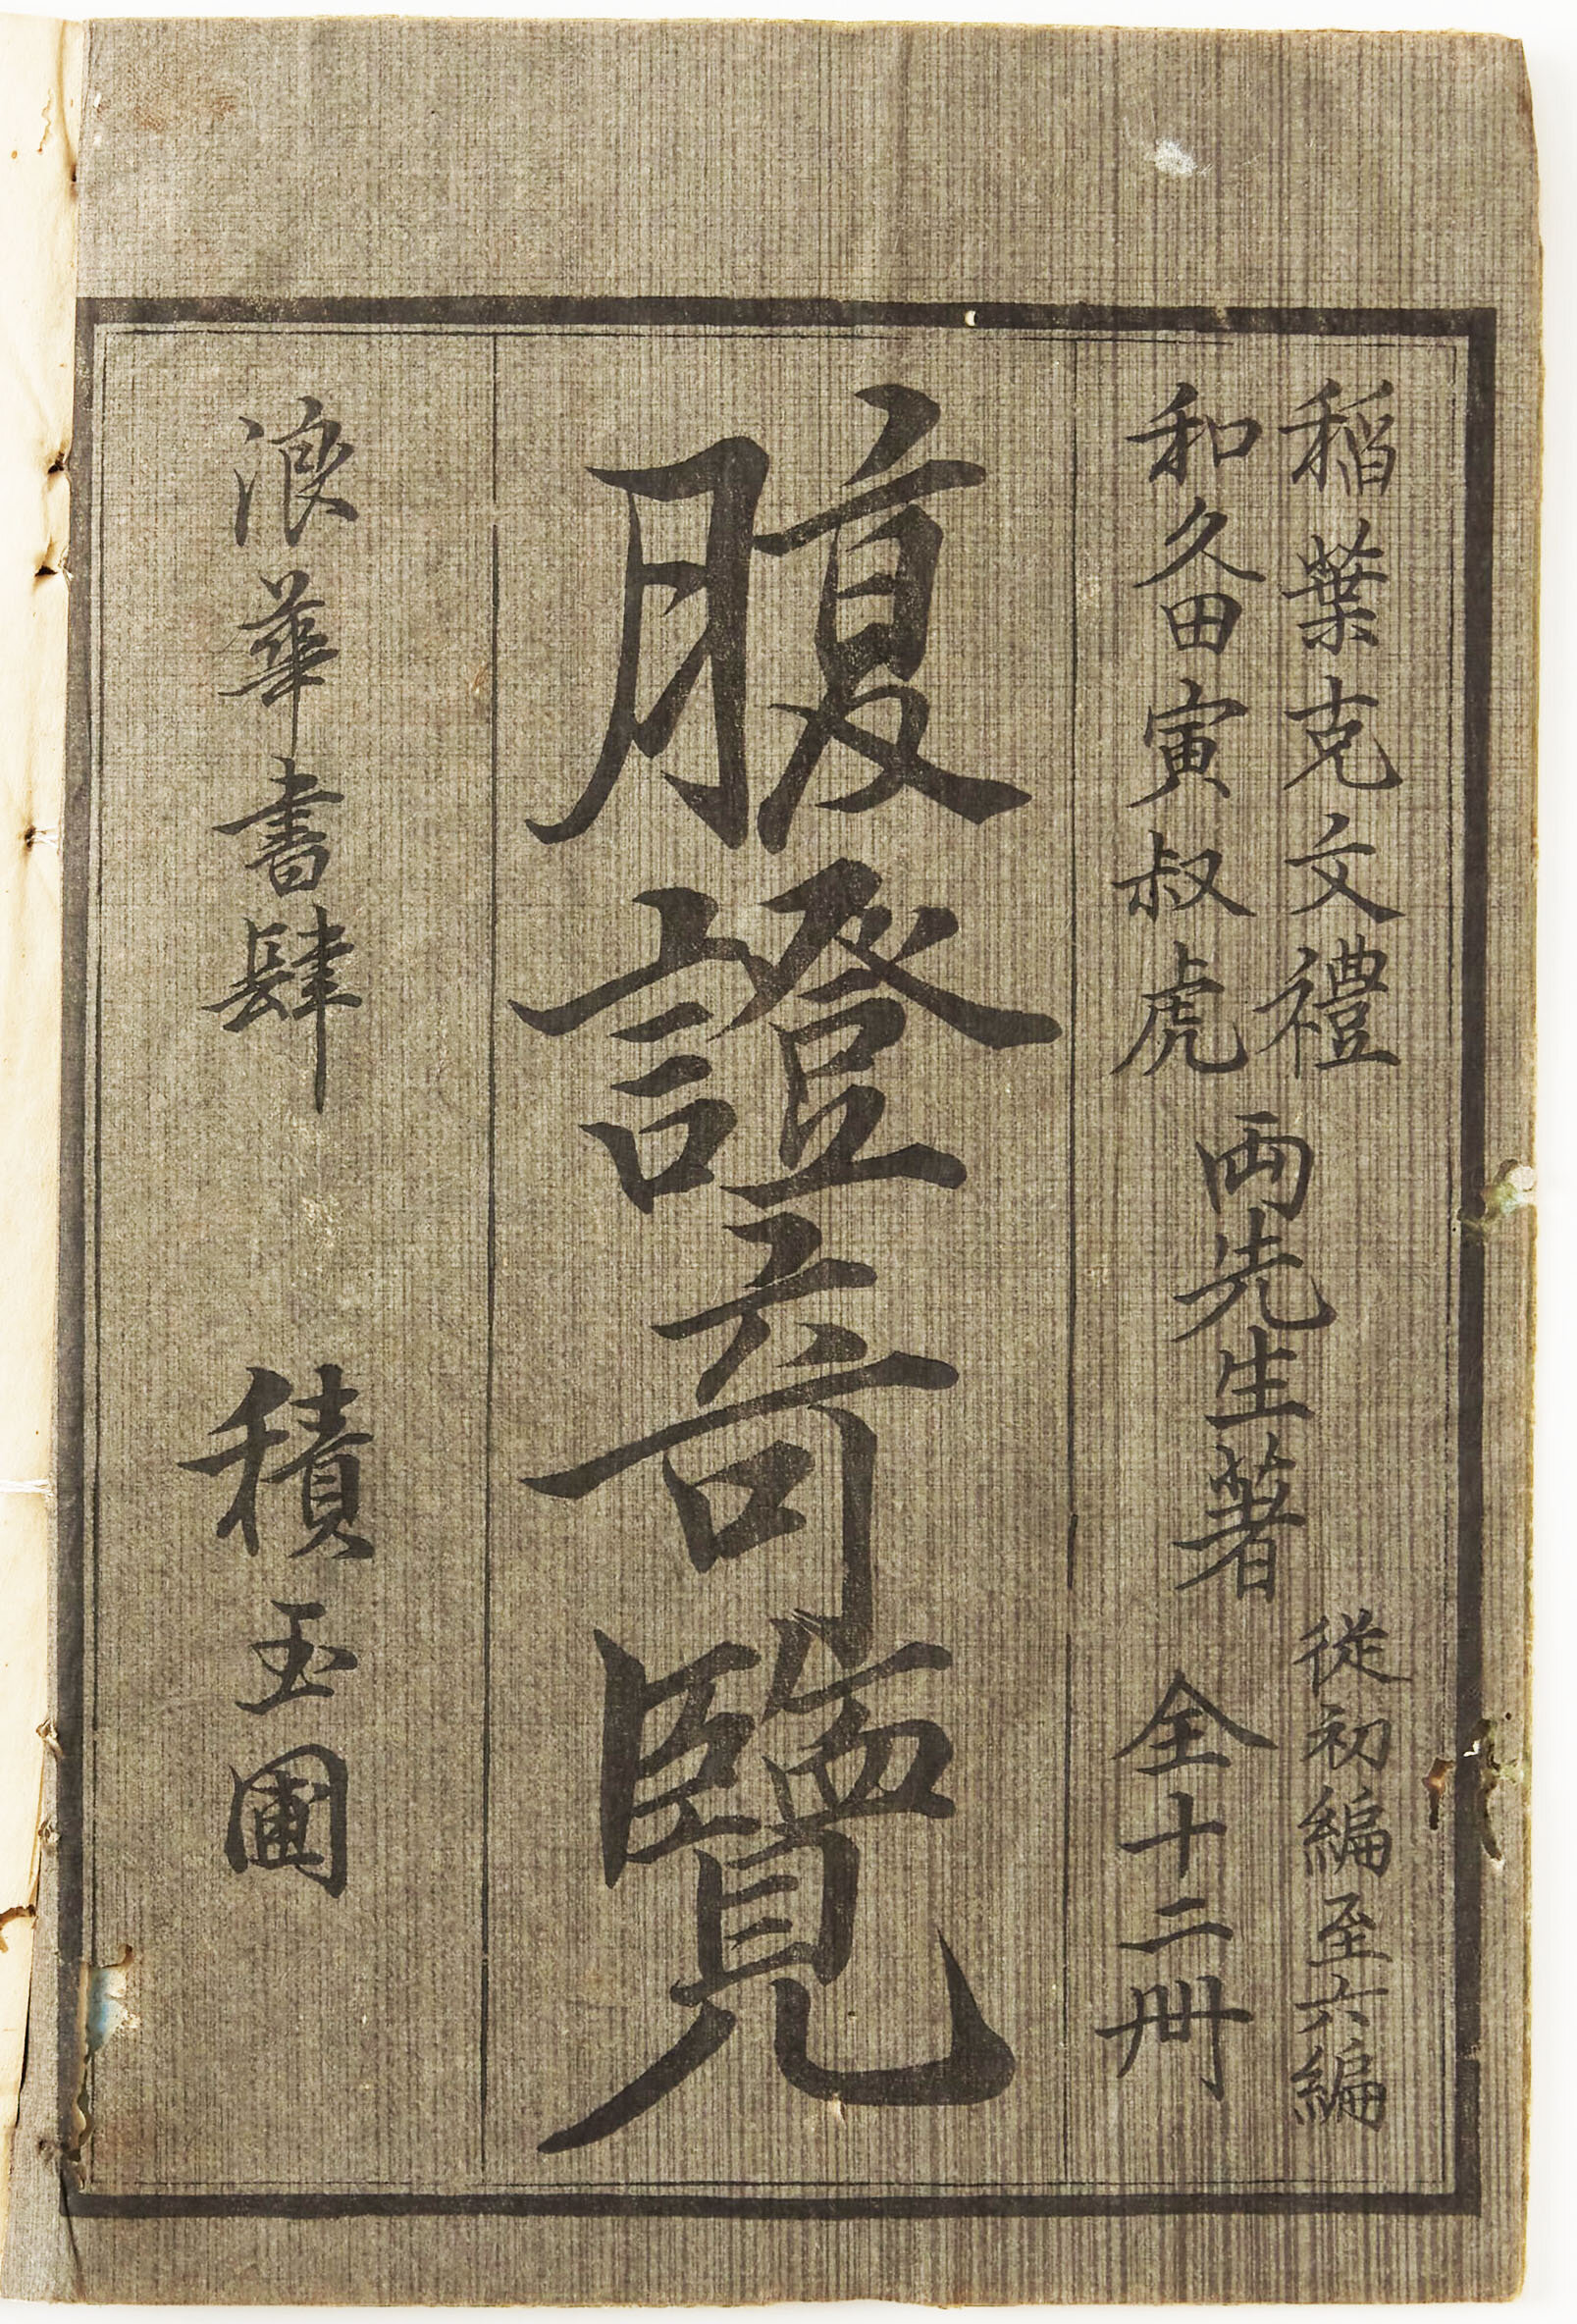 稲葉克文禮
和久田寅叔虎
両先生著
従初編至六編
全十二冊
腹證奇覽
浪華書肆 積玉圃